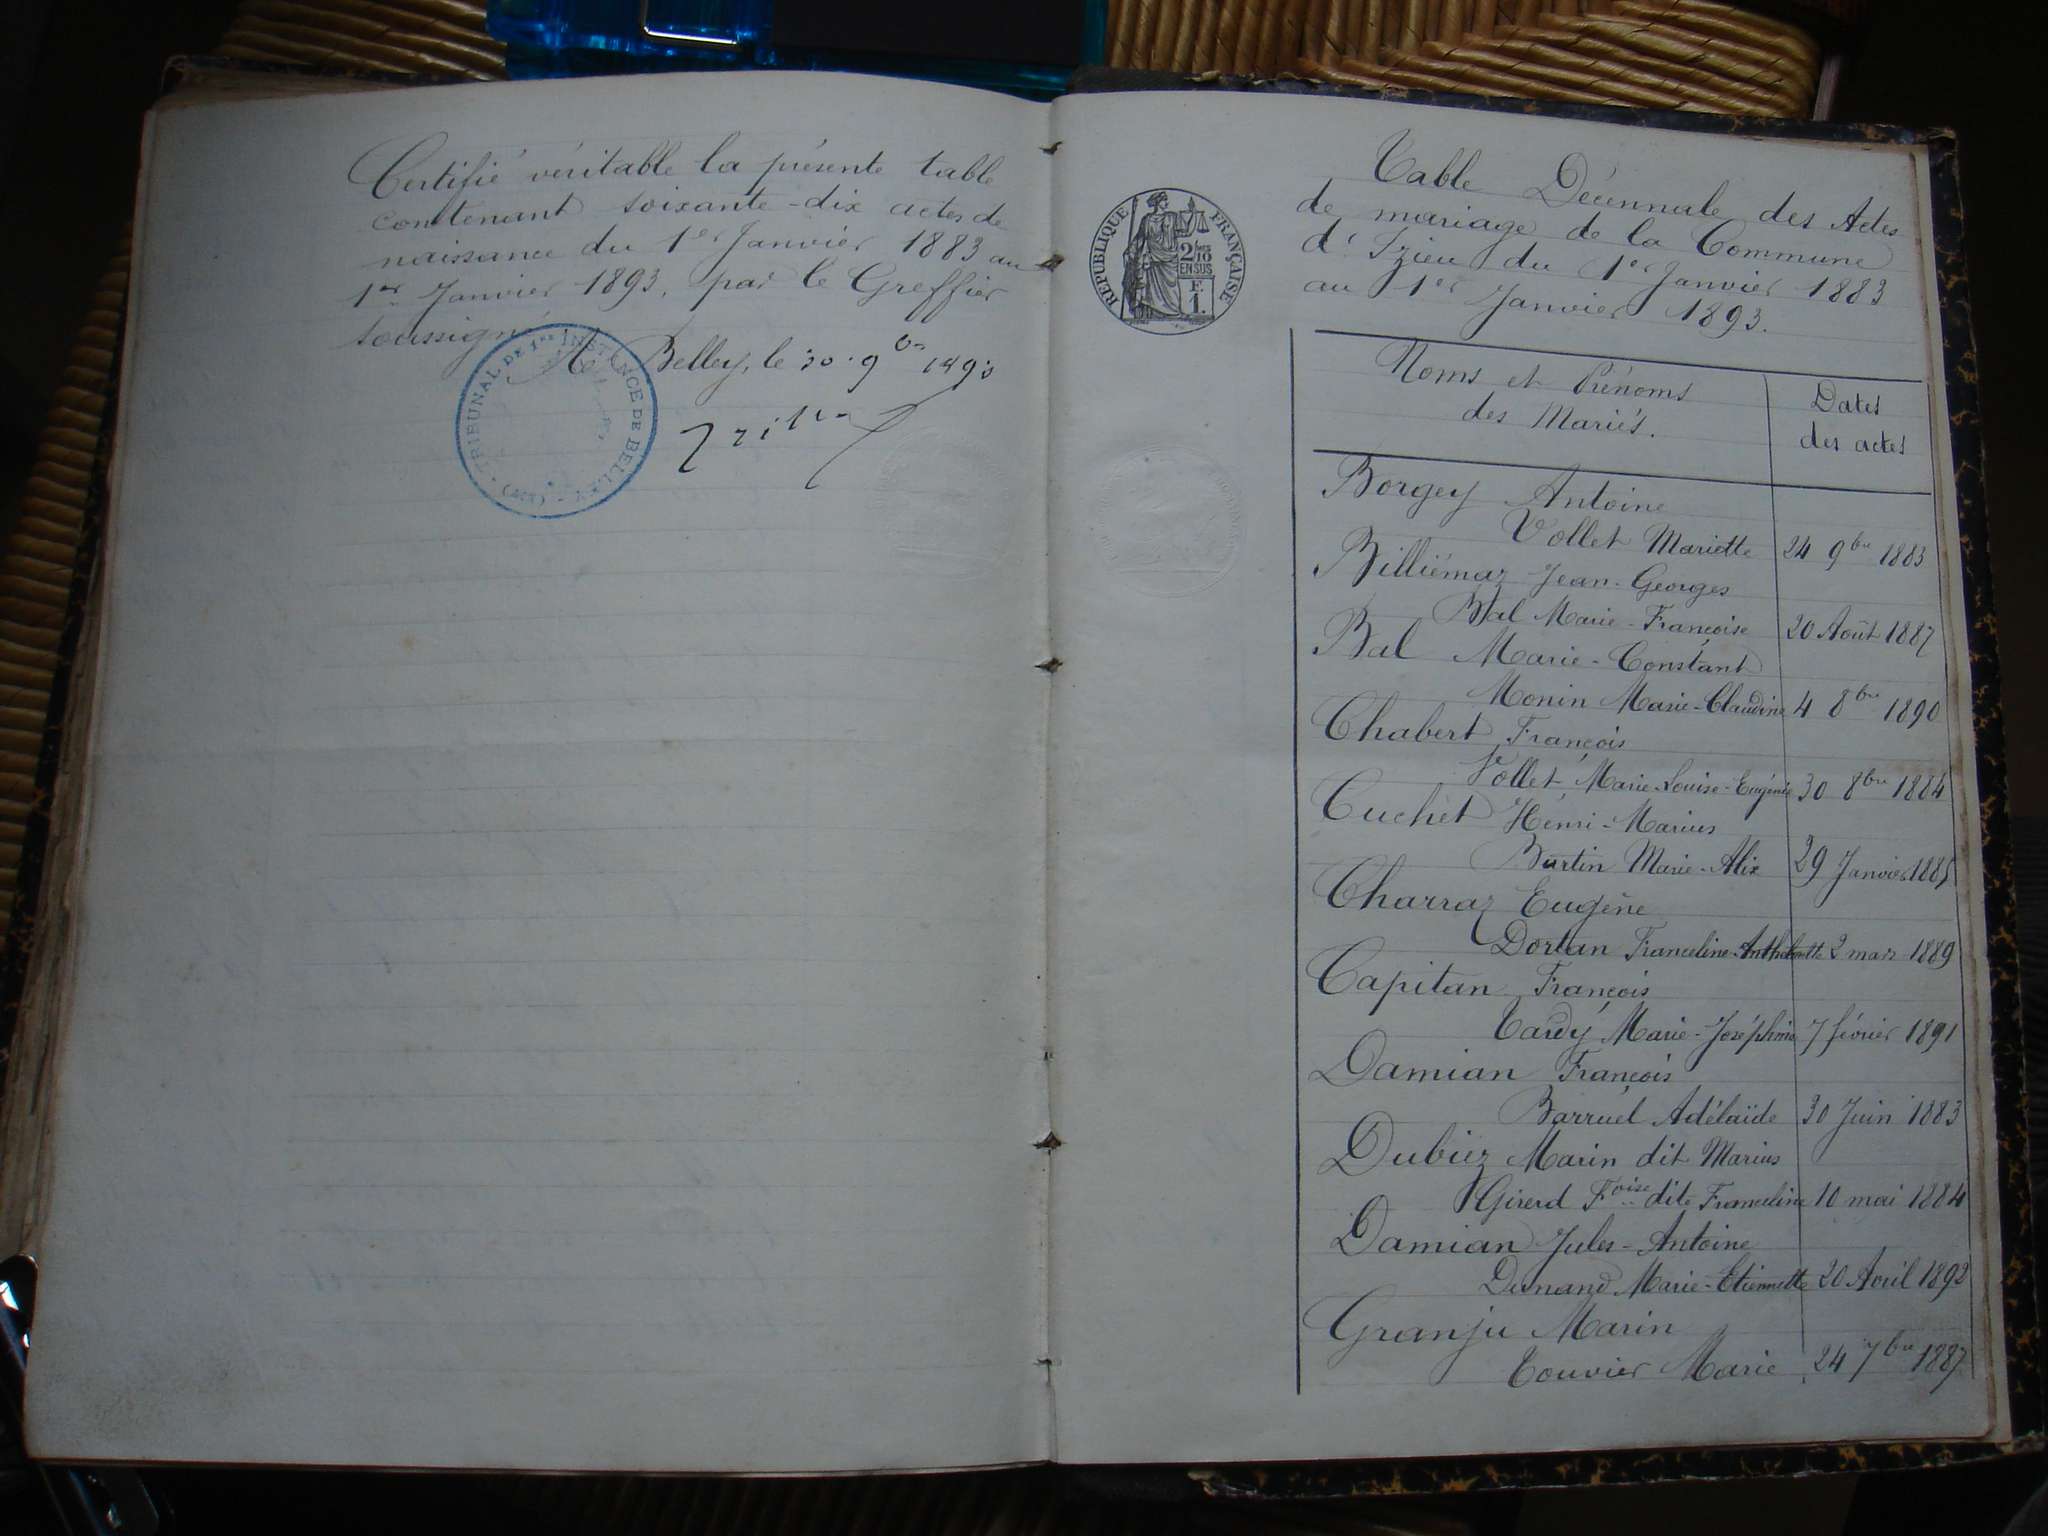 Certifié véritable la présente table
contenant soixante-dix actes de
naissance du 1er Janvier 1883 au
1er Janvier 1893, par le Greffier
soussigné
A Belley, le 30 9bre 1893
TRIBUNAL DE 1re INSTANCE DE BELLEY (AIN)
RÉPUBLIQUE FRANÇAISE
2/10
EN SUS
F.
1.
Table Décennale des Actes
de mariage de la Commune
d'Izieu du 1er Janvier 1883
au 1er Janvier 1893.
Noms et Prénoms
des Mariés.
Dates
des actes
Borgey Antoine
Vollet Mariette 24 9bre 1883
Billiémaz Jean-Georges
Bal Marie-Françoise 20 Août 1887
Bal Marie-Constant
Monin Marie-Claudine 4 8bre 1890
Chabert François
Vollet Marie-Louise-Eugénie 30 8bre 1884
Cuchet Henri-Marius
Burtin Marie-Alix 29 Janvier 1885
Charraz Eugène
Dorban Franceline-Anthelmette 2 mars 1889
Capitan François
Tardy Marie-Joséphine 7 février 1891
Damian François
Barruel Adélaïde 30 Juin 1883
Dubiez Marin dit Marius
Girerd Foise dite Franceline 10 mai 1884
Damian Jules-Antoine
Dunand Marie-Etiennette 20 Avril 1892
Granju Marin
Touvier Marie 24 7bre 1887